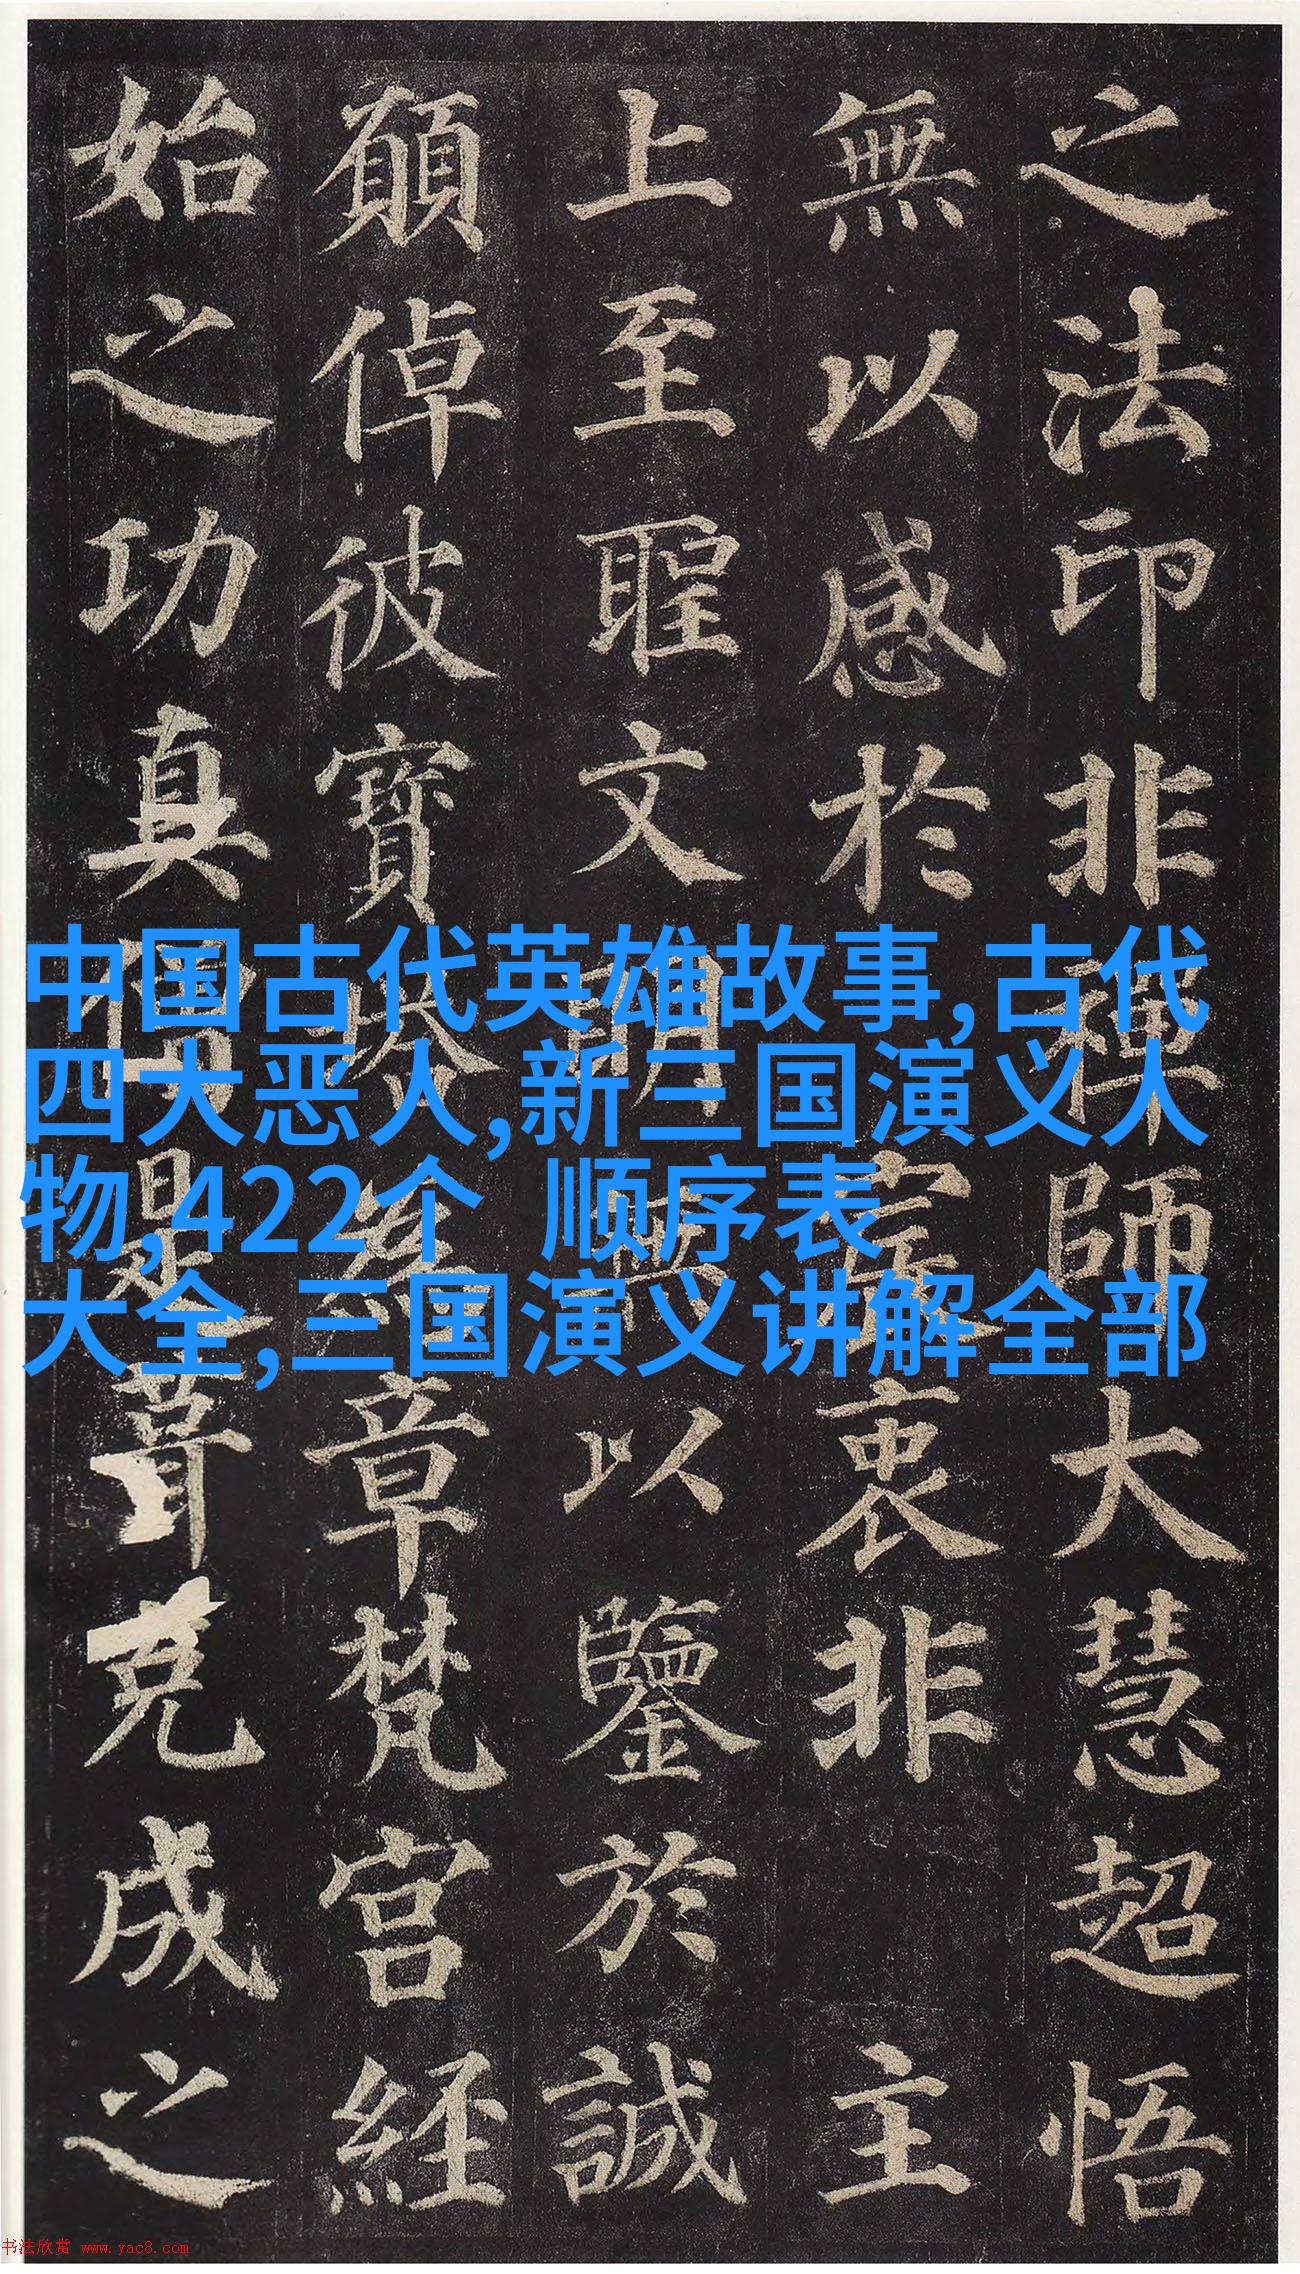 之法印非禪師大慧超悟
無以感於宸衷非主
上至聖文明無以鑒於誠
願倬彼寶塔為章梵宮経
始之功真僧是葺克成之
中国古代英雄故事,古代
四大恶人,新三国演义人
物,422个 顺序表
大全,三国演义讲解全部
书法欣赏 www.yac8.com